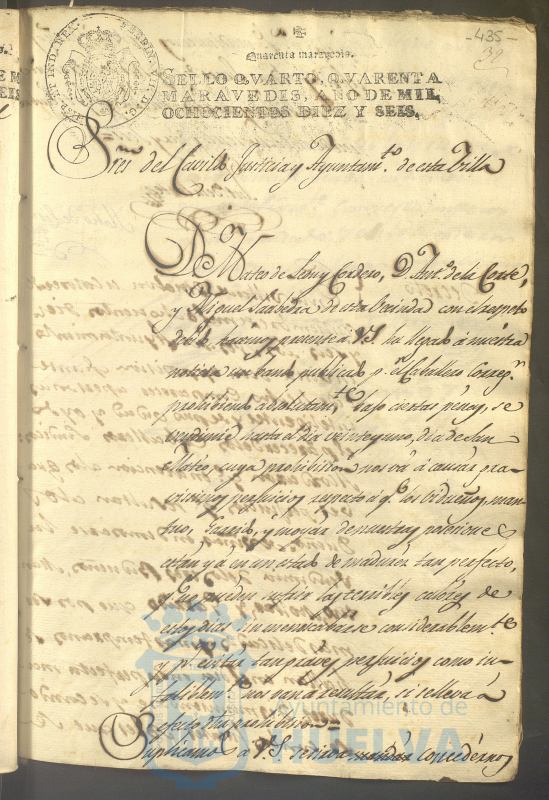 -435-
Quarenta maravedis.
SELLO QVARTO, QVARENTA
MARAVEDIS, AÑO DE MIL
OCHOCIENTOS DIEZ Y SEIS.
Sres. del Cavildo Justicia y Ayuntamto. de esta Villa
Dn. Mateo de Leon y Cordero, Dn. Anto. de la Corte,
y Miguel Saavedra de esta Vecindad con el respeto
debido hacemos presente a VS. ha llegado á nuestra
noticia un bando publicado pr. el Caballero Corregr.
prohibiendo absolutamte. bajo ciertas penas, se
vendimie hasta el dia veinte y uno, dia de San
Mateo, cuya prohibision nos vá á causar gra-
visimos perjuicios respecto á qe. los viduños, man-
tuo, y moyar de nuestras poseciones
están yá en un estado de madures tan perfecto,
que no pueden sufrir los terribles calores de
estos dias sin menoscabarse considerablemte.
y pr. evitar tan graves perjuicios como in-
faliblemte. nos van á resultar, si se lleva á
efecto dha. prohibision =
Suplicamos a V.S. se sirva concedernos
Ayuntamiento de
HUELVA